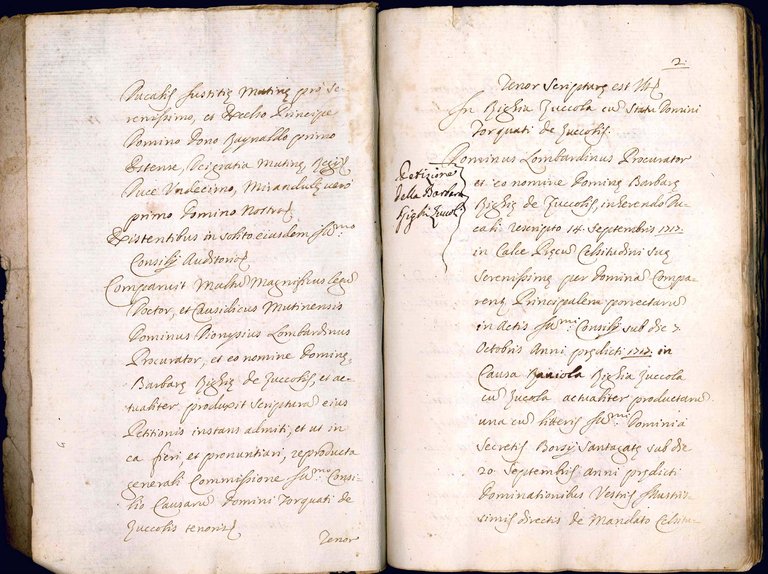 Ducalis Justitię Mutinę pro Se-
renissimo, et Excelso Principe
Domino Dono Raynaldo primo
Estense, Dei gratia Mutinę Regij
Duce Undecimo, Mirandulę vero
primo Domino Nostro
Existentibus in solito eiusdem Su:mo
Consilij Auditorio
Comparuit Multum Magnificus legum
Doctor, et Causidicus Mutinensis
Dominus Dionysius Lombardinus
Procurator, et eo nomine Dominę
Barbarę Bighię de Zuccolis, et ac-
tualiter produxit Scripturam eius
Petitionis instans admitti, et ut in
ea fieri, et pronuntiari, reproducta
generali Commissione Su:mo Consi-
lio Causarum Domini Torquati de
Zuccolis tenoris
Tenor
2.
Tenor Scripturę est
In Bighia Zuccola cum Statu Domini
Torquati de Zuccolis.
Dominus Lombardinus Procurator
et eo nomine Dominę Barbarę
Bighię de Zuccolis, inherendo Du-
cali rescripto 14. Septembris 1717.
in Calce Celsitudini Suę
Serenissimę per Dominam Compa-
rentę Principalem porrectarum
in Actis Su:mi Consilij sub die 7
Octobris Anni prędicti 1717. in
Causa Bighia Zuccola
cum Zuccola actualiter productarum
una cum litteris Su:mi Dominia
Secretis Borsij Santagatę sub die
20 Septembris anni prędicti
Dominationibus Vestris Illustris-
simis directis de Mandato Celsitu-
Petizione
della Barbara
Bighi Zuccoli